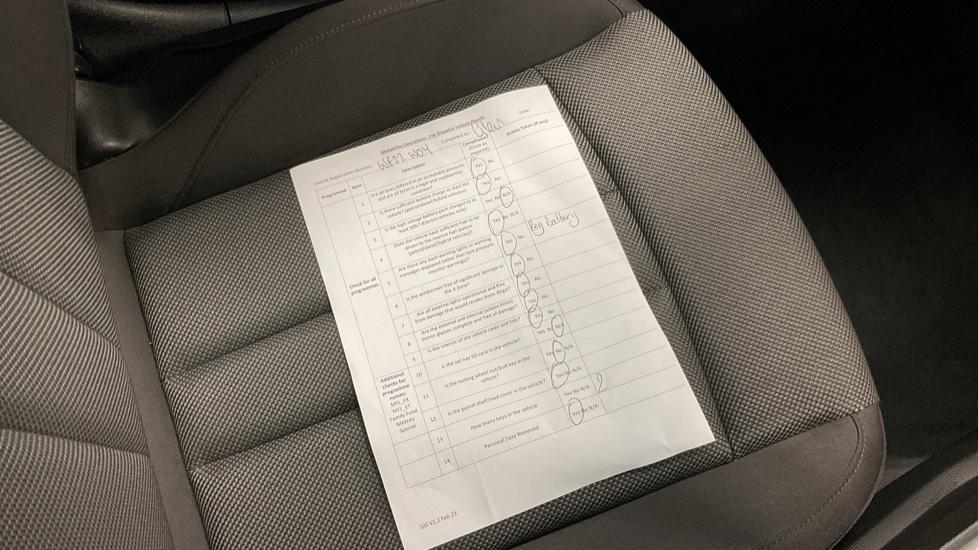 Motability Operations - Pre Dispatch Vehicle Checks
Vehicle Registration Number: WF22 Completed by: Date:
Programme Item Description Compliance? (Circle as required) Action Taken (if any)
Check for all programmes
1 Are all tyres inflated to an acceptable pressure, and are all tyres in a legal and roadworthy condition? Yes No
2 Is there sufficient battery charge to start the vehicle? (petrol/diesel/hybrid vehicles) Yes No
3 Is the high voltage battery pack charged to at least 50%? (Electric vehicles only) Yes No N/A
4 Does the vehicle have sufficient fuel to be driven to the nearest fuel station (petrol/diesel/hybrid vehicles)? Yes No N/A
5 Are there any dash warning lights or warning messages displayed (other than tyre pressure monitor warnings)? Yes No Key Battery
6 Is the windscreen free of significant damage to the A Zone? Yes No
7 Are all external lights operational and free from damage that would render them illegal? Yes No
8 Are the external and internal (where fitted) mirror glasses complete and free of damage? Yes No
9 Is the interior of the vehicle clean and tidy? Yes No
Additional checks for programme names:
MFL_EX
MFL_ET
Family Fund
MXWAV
Special
10 Is the sat nav SD card in the vehicle? Yes No N/A
11 Is the locking wheel nut/bolt key in the vehicle? Yes No N/A
12 Is the parcel shelf/load cover in the vehicle? Yes No N/A
13 How many keys in the vehicle Yes No N/A 2
14 Personal Data Removed Yes No N/A
SJG V1.2 Feb 23